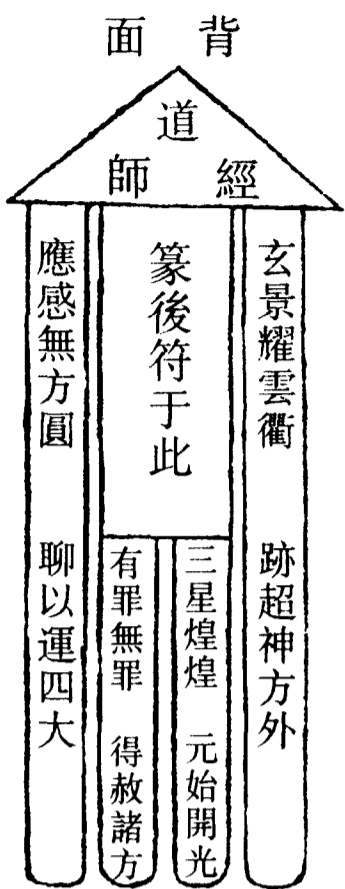 背面
道
經師
玄景耀雲衢 跡超神方外
篆後符于此
三星煌煌 元始開光
有罪無罪 得赦諸方
應感無方圓 聊以運四大